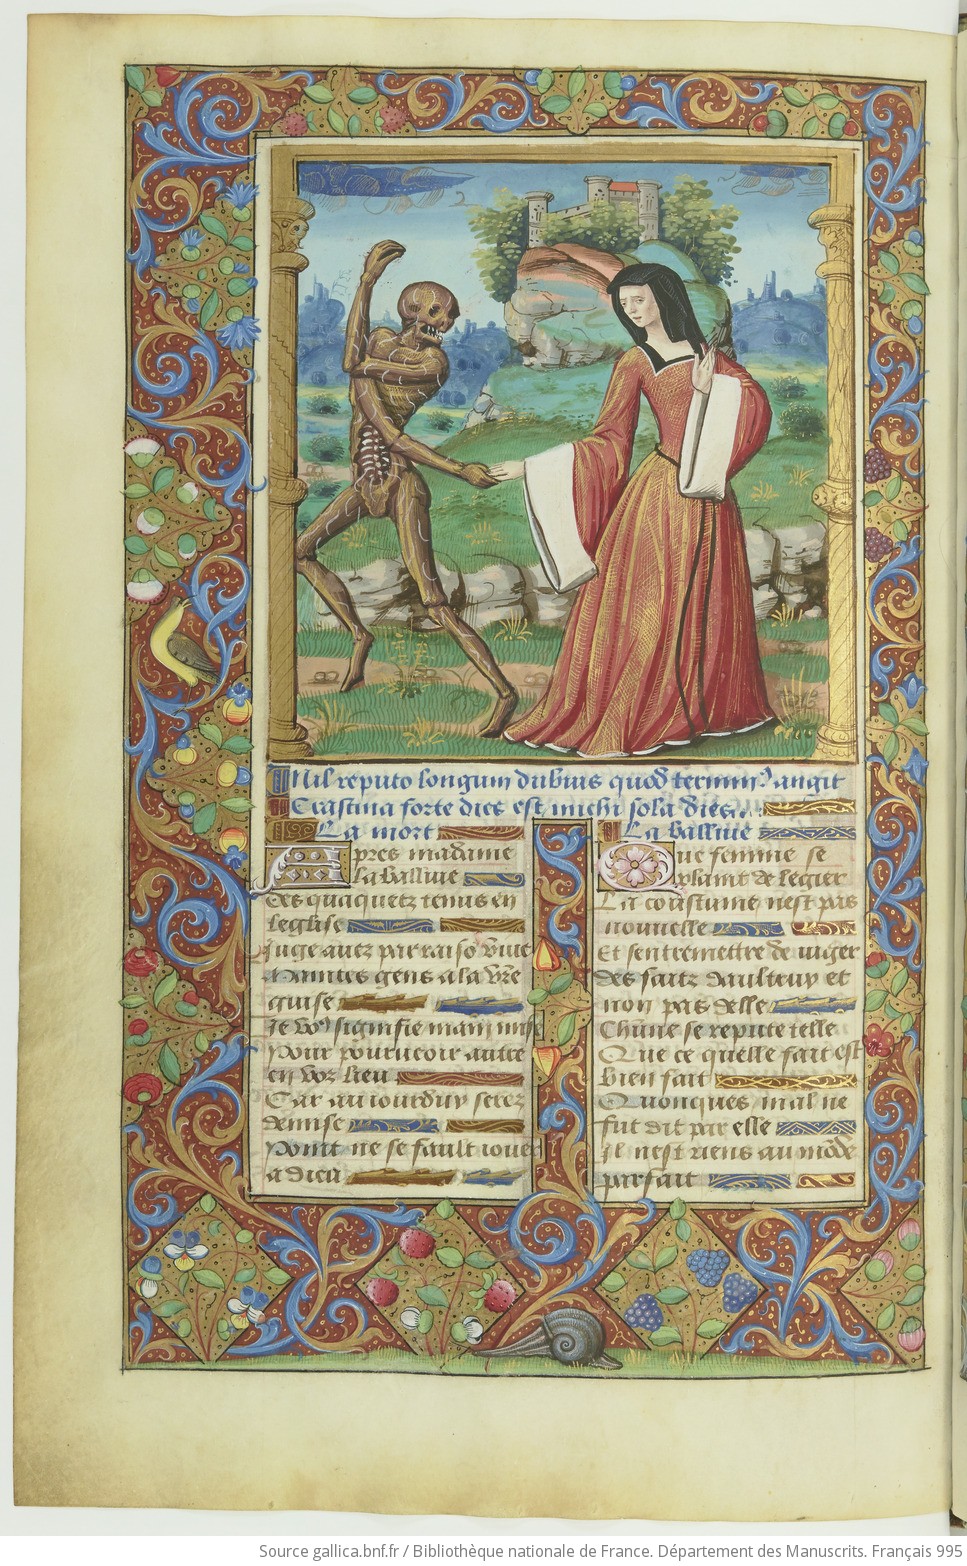 Nil reputo longum dubius quod terminus angit
Crastina forte dies est michi sola dies.
La mort
Apres madame
la baillive
Des quaquetz tenus en
leglise
Juge avez par raiso
Maintes gens a la vre
guise
Je vo' signifie main mise
Pour pourveoir aultre
en voz lieu
Car au iourduy serez
demise
Point ne se fault iouer
a dieu
La baillive
Que femme se
plaint de legier
La coustume nest pas
nouvelle
Et sentremettre de iuger
des faitz daultruy et
non pas delle
Chune se repute telle
Que ce quelle fait est
bien fait
Quonques mal ne
fut dit par elle
Il nest riens au mode
parfait
Source gallica.bnf.fr / Bibliothèque nationale de France. Département des Manuscrits. Français 995